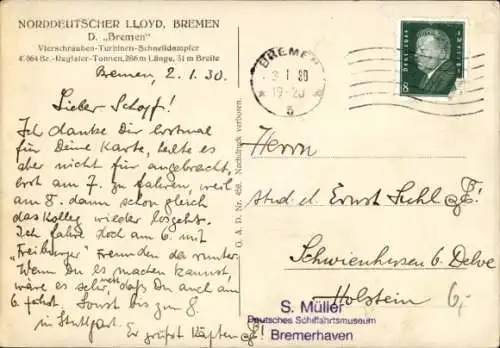 NORDDEUTSCHER LLOYD, BREMEN
D. „Bremen"
Vierschrauben-Turbinen-Schnelldampfer
Br.-Register-Tonnen, 286 m Länge, 31 m Breite
Bremen, 2.1.30.
Lieber Schorsch!
Ich danke Dir erstmal
für Deine Karte, halte es
aber nicht für angebracht,
erst am 7. zu fahren, weil
am 8. dann schon gleich
das Kolleg wieder losgeht.
Ich fahre doch am 6. mit
„Freiburger" Freunden da runter.
Wenn Du es machen kannst,
wäre es sehr nett, daß Du auch am
6. fährst. Sonst bis zum 8.
in Stuttgart. Es grüßt
G. A. D. Nr. Nachdruck verboten.
BREMEN
3 1 30
19-20
5
Deutsches Reich
8
Herrn
stud. d. Ernst
Schwienhusen b. Delve
Holstein
6,-
S. Müller
Deutsches Schiffahrtsmuseum
Bremerhaven